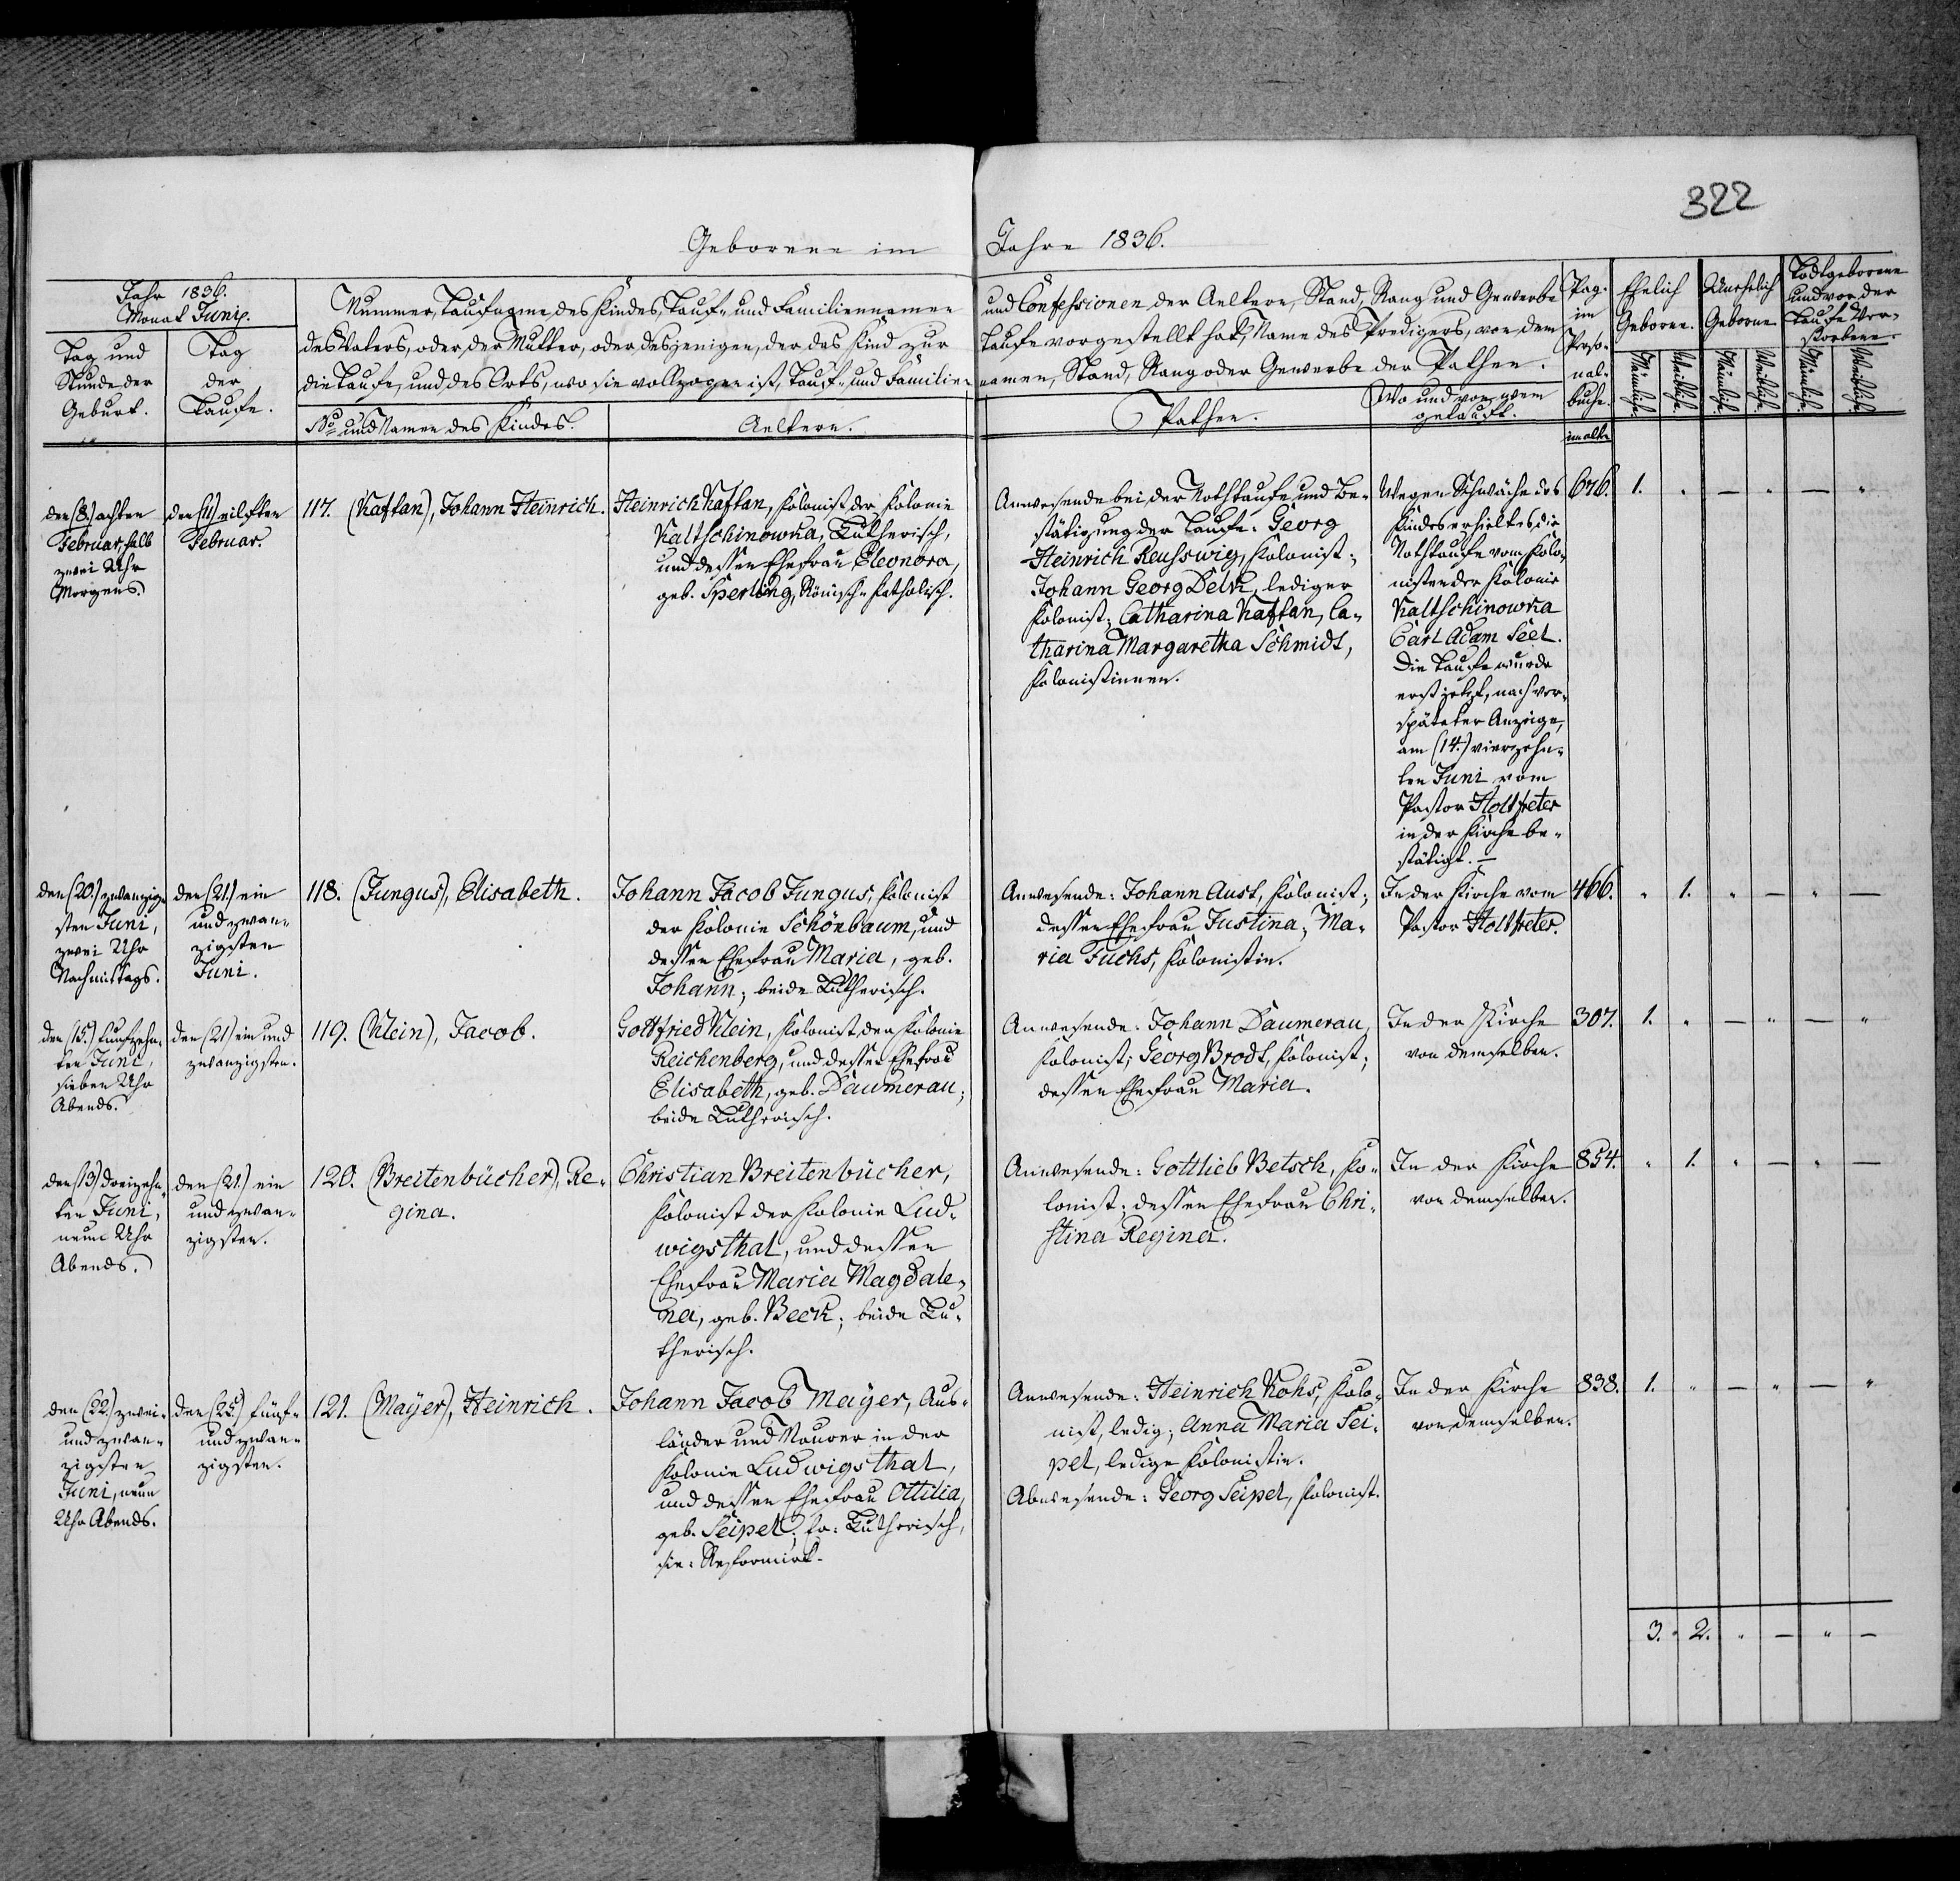 322
Geborene im Jahre 1836.
Jahr 1836.
Monat Junij.
Tag und
Stunde der
Geburt.
Tag
der
Taufe.
Nummer, Taufname des Kindes, Tauf- und Familiennamen und Confessionen der Aeltern, Stand, Rang und Gewerbe
des Vaters, oder der Mutter, oder desjenigen, der das Kind zur Taufe vorgestellt hat, Name des Predigers, von dem
die Taufe, und des Orts, wo sie vollzogen ist, Tauf- und Familiennamen, Stand, Rang oder Gewerbe der Pathen.
No und Namen des Kindes.
Aeltern.
Pathen.
Wo und von wem
getauft.
Pag.
im
Perso-
nal-
buche.
im alten
Ehelich
Geborene.
Unehelich
Geborne
Todtgeborene
und vor der
Taufe Ver-
storbene.
Männlich.
Weiblich.
Männlich.
Weiblich.
Männlich.
Weiblich.
den (8.) achten
Februar, halb
zwei Uhr
Morgens.
den (11.) eilften
Februar.
117. (Kaftan), Johann Heinrich.
Heinrich Kaftan, Kolonist der Kolonie
Kaltschinowka, Lutherisch,
und dessen Ehefrau Eleonora,
geb. Sperling, Römisch-katholisch.
Anwesende bei der Nothtaufe und Be-
stätigung der Taufe: Georg
Heinrich Reusswig, Kolonist;
Johann Georg Delk, lediger
Kolonist; Catharina Kaftan, Ca-
tharina Margaretha Schmidt,
Kolonistinnen.
Wegen Schwäche des
Kindes erhielt es die
Nothtaufe vom Kolo-
nisten der Kolonie
Kaltschinowka
Carl Adam Seel.
Die Taufe wurde
erst jetzt, nach ver-
späteter Anzeige,
am (14.) vierzehn-
ten Juni vom
Pastor Holtfreter
in der Kirche be-
stätigt. –
676. 1. " — " — "
den (20.) zwanzig-
sten Juni,
zwei Uhr
Nachmittags.
den (21.) ein
und zwan-
zigsten
Juni.
118. (Jungus), Elisabeth.
Johann Jacob Jungus, Kolonist
der Kolonie Schönbaum, und
dessen Ehefrau Maria, geb.
Johann; beide Lutherisch.
Anwesende: Johann Aust, Kolonist;
dessen Ehefrau Justina; Ma-
ria Fuchs, Kolonistin.
In der Kirche vom
Pastor Holtfreter.
466. " 1. " — " —
den (15.) fünfzehn-
ten Juni,
sieben Uhr
Abends.
den (21.) ein und
zwanzigsten.
119. (Klein), Jacob.
Gottfried Klein, Kolonist der Kolonie
Reichenberg, und dessen Ehefrau
Elisabeth, geb. Daumerau;
beide Lutherisch.
Anwesende: Johann Daumerau,
Kolonist; Georg Brodt, Kolonist;
dessen Ehefrau Maria.
In der Kirche
von demselben.
307. 1. " — " — "
den (13.) dreizehn-
ten Juni,
neun Uhr
Abends.
den (21.) ein
und zwan-
zigsten.
120. (Breitenbücher), Re-
gina.
Christian Breitenbücher,
Kolonist der Kolonie Lud-
wigsthal, und dessen
Ehefrau Maria Magdale-
na, geb. Beck; beide Lu-
therisch.
Anwesende: Gottlieb Betsch, Ko-
lonist; dessen Ehefrau Chri-
stina Regina.
In der Kirche
von demselben.
854. " 1. " — " —
den (22.) zwei-
und zwan-
zigsten
Juni, neun
Uhr Abends.
den (25.) fünf-
und zwan-
zigsten.
121. (Mayer), Heinrich.
Johann Jacob Mayer, Aus-
länder und Maurer in der
Kolonie Ludwigsthal,
und dessen Ehefrau Ottilia,
geb. Seipel; er: Lutherisch,
sie: Reformirt.
Anwesende: Heinrich Kohs, Kolo-
nist, ledig; Anna Maria Sei-
pel, ledige Kolonistin.
Abwesende: Georg Seipel, Kolonist.
In der Kirche
von demselben.
838. 1. " — " — "
3. 2. " — " —